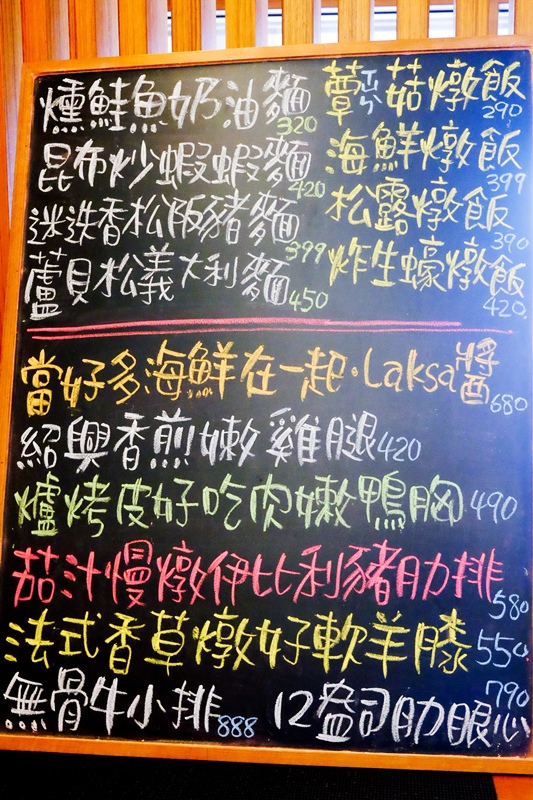 燻鮭魚奶油麵 320
昆布炒蝦蝦麵 420
迷迭香松阪豬麵 399
蘆貝松義大利麵 450
蕈菇燉飯 290
海鮮燉飯 399
松露燉飯 390
炸生蠔燉飯 420
當好多海鮮在一起·Laksa醬 680
紹興香煎嫩雞腿 420
爐烤皮好吃肉嫩鴨胸 490
茄汁慢燉伊比利豬肋排 580
法式香草燉好軟羊膝 550
無骨牛小排 888
12盎司肋眼心 790